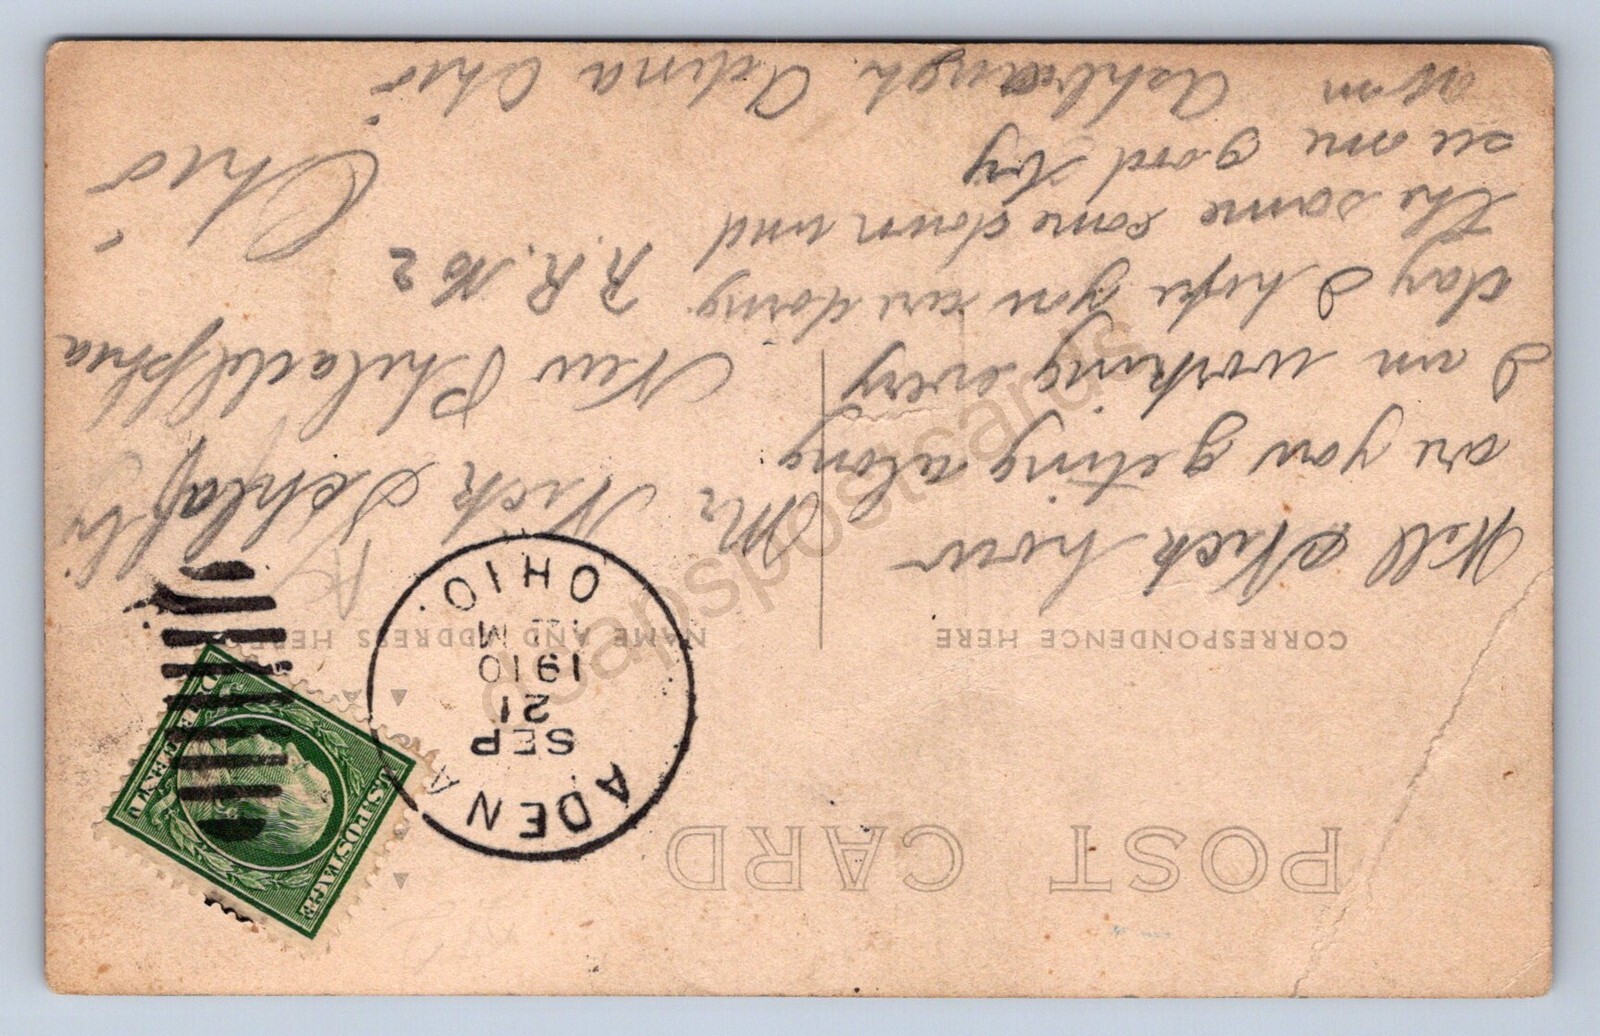 POST CARD
CORRESPONDENCE HERE
NAME AND ADDRESS HERE
ADENA
SEP
21
1910
M
OHIO.
U.S. POSTAGE
ONE CENT
Well Nick how
are you geting along
I am working every
day I hope you are doing
the same come down and
see me good by
Ashbaugh Adena Ohio
Mr Nick Schlafly
New Philadelphia
R.R. No 2
Ohio
doapspostcards